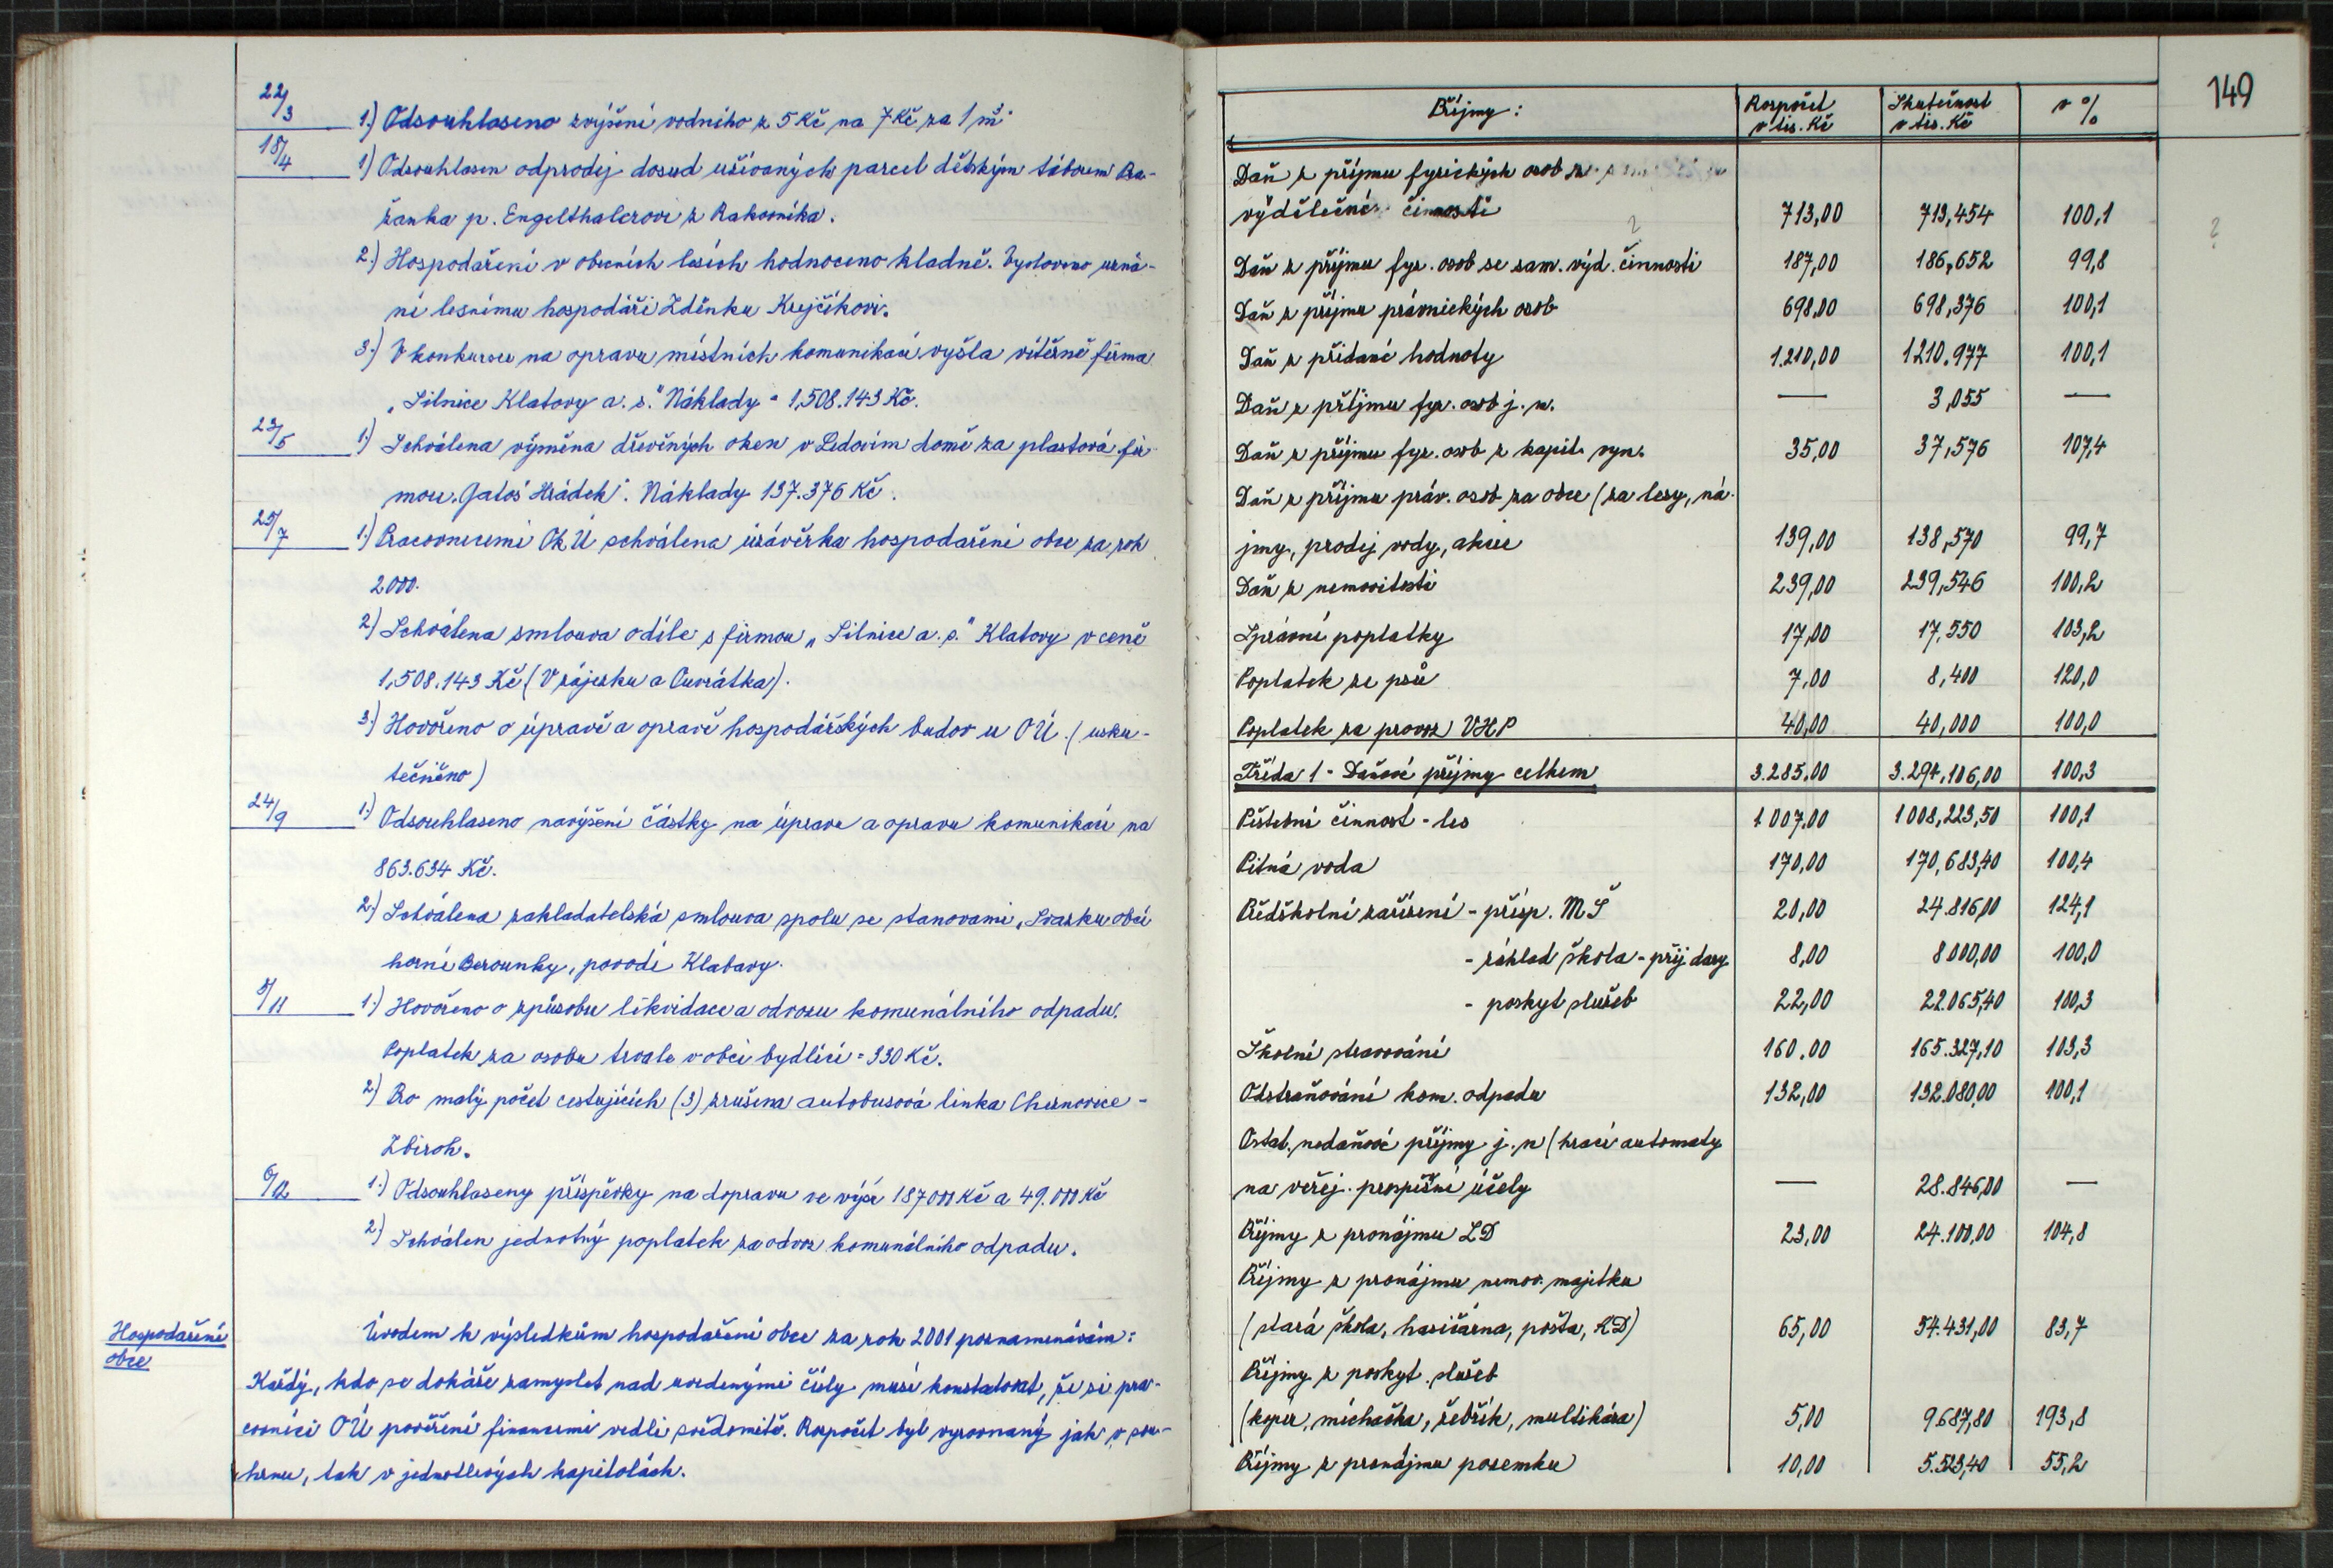 22/3 1.) Odsouhlaseno zvýšení vodného z 5 Kč na 7 Kč za 1 m³.
18/4 1) Odsouhlasen odprodej dosud užívaných parcel dětským táborem Pra-
žanka p. Engelthalerovi z Rakovníka.
2.) Hospodaření v obecních lesích hodnoceno kladně. Vysloveno uzná-
ní lesnímu hospodáři Zdeňku Krejčíkovi.
3.) V konkursu na opravu místních komunikací vyšla vítězně firma
„Silnice Klatovy a. s." Náklady = 1,508.143 Kč.
23/5 1.) Schválena výměna dřevěných oken v Lidovém domě za plastová fir-
mou „Galoš Hrádek". Náklady 137.376 Kč.
25/7 1.) Pracovnicemi OkÚ schválena uzávěrka hospodaření obce za rok
2000.
2.) Schválena smlouva o díle s firmou „Silnice a. s." Klatovy v ceně
1,508.143 Kč (V zájezku a Cuvrátka).
3.) Hovořeno o úpravě a opravě hospodářských budov u OÚ. (usku-
tečněno)
24/9 1.) Odsouhlaseno navýšení částky na úpravu a opravu komunikací na
863.634 Kč.
2.) Schválena zakladatelská smlouva spolu se stanovami „Svazku obcí
horní Berounky, povodí Klabavy.
8/11 1.) Hovořeno o způsobu likvidace a odvozu komunálního odpadu.
Poplatek za osobu trvale v obci bydlící = 330 Kč.
2.) Pro malý počet cestujících (3) zrušena autobusová linka Cheznovice -
Zbiroh.
6/12 1.) Odsouhlaseny příspěvky na dopravu ve výši 187 000 Kč a 49.000 Kč
2.) Schválen jednotný poplatek za odvoz komunálního odpadu.
Hospodaření
obce
Úvodem k výsledkům hospodaření obce za rok 2001 poznamenávám:
Každý, kdo se dokáže zamyslet nad uvedenými čísly musí konstatovat, že si pra-
covníci OÚ pověření financemi vedli svědomitě. Rozpočet byl vyrovnaný jak v sou-
hrnu, tak v jednotlivých kapitolách.
149
Příjmy: Rozpočet v tis. Kč Skutečnost v tis. Kč v %
Daň z příjmu fyzických osob ze
výdělečné činnosti 713,00 713,454 100,1
Daň z příjmu fyz. osob se sam. výd. činnosti 187,00 186,652 99,8
Daň z příjmu právnických osob 698,00 698,376 100,1
Daň z přidané hodnoty 1.210,00 1210.977 100,1
Daň z příjmu fyz. osob j. n. — 3,055 —
Daň z příjmu fyz. osob z kapit. vyn. 35,00 37,576 107,4
Daň z příjmu práv. osob za obce (za lesy, ná-
jmy, prodej vody, akcie 139,00 138,570 99,7
Daň z nemovitosti 239,00 239,546 100,2
Správní poplatky 17,00 17,550 103,2
Poplatek ze psů 7,00 8,400 120,0
Poplatek za provoz VHP 40,00 40,000 100,0
Třída 1 - Daňové příjmy celkem 3.285,00 3.294,106,00 100,3
Pěstební činnost - les 1 007,00 1 008,223,50 100,1
Pitná voda 170,00 170,683,40 100,4
Předškolní zařízení - přísp. MŠ 20,00 24.816,00 124,1
- základ škola - příj dary 8,00 8 000,00 100,0
- poskyt služeb 22,00 22.065,40 100,3
Školní stravování 160.00 165.327,10 103,3
Odstraňování kom. odpadu 132,00 132.080,00 100,1
Ostat. nedaňové příjmy j. n (hrací automaty
na veřej. prospěšné účely — 28.846,00 —
Příjmy z pronájmu LD 23,00 24.100,00 104,8
Příjmy z pronájmu nemov. majetku
(stará škola, hasičárna, pošta, KD) 65,00 54.431,00 83,7
Příjmy z poskyt. služeb
(kopír, míchačka, žebřík, multikára) 5,00 9.687,80 193,8
Příjmy z pronájmu pozemku 10,00 5.523,40 55,2